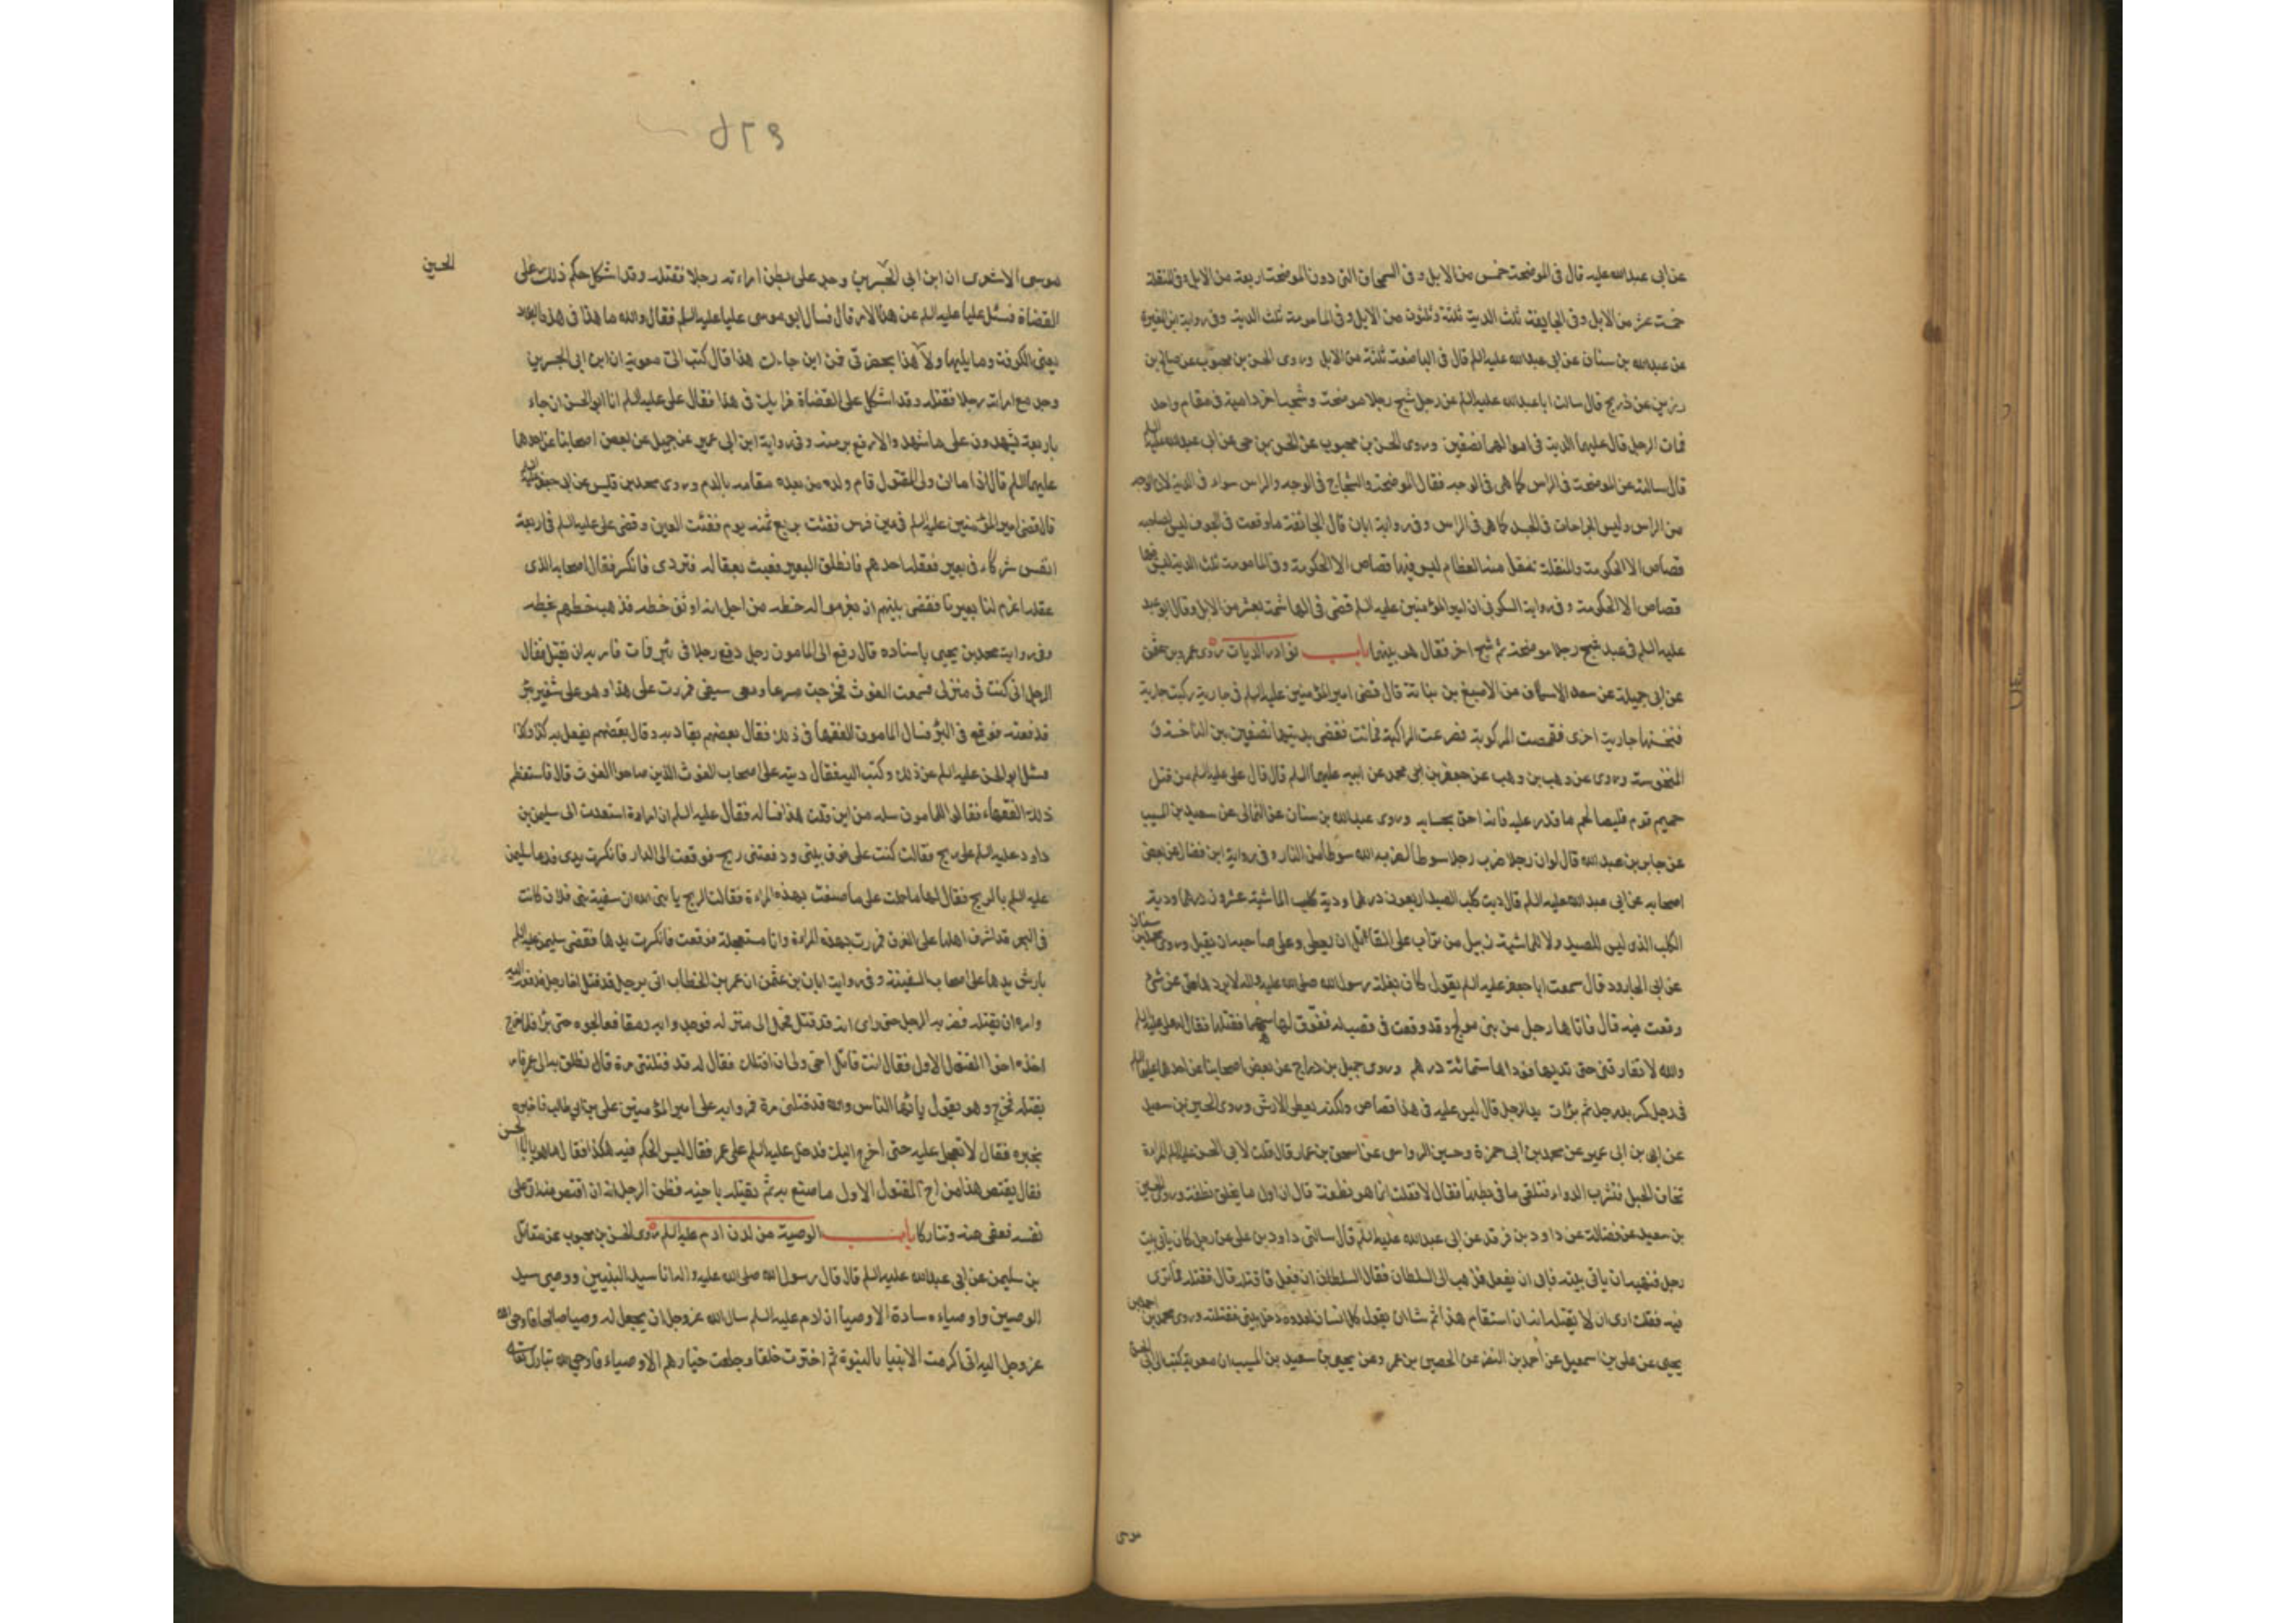 عن ابی عبدالله علیه قال فی الموضحة خمس من الابل و فی السمحاق التی دون الموضحة اربعة من الابل و فی المنقلة
خمسة عشر من الابل و فی الجایفة ثلث الدیة ثلثة و ثلثون من الابل و فی المامومة ثلث الدیة و فی روایة ابن المغیرة
عن عبدالله بن سنان عن ابی عبدالله علیه السلم قال فی الباضعة ثلثة من الابل و روی الحسن بن محبوب عن صالح بن
رزین عن ذریح قال سالت ابا عبدالله علیه السلم عن رجل شج رجلا موضحة و شجه اخر دامیة فی مقام واحد
فمات الرجل قال علیهما الدیة فی اموالهما نصفین و روی الحسن بن محبوب عن الحسن بن حی عن ابی عبدالله علیه السلم
قال سالته عن الموضحة فی الراس کما هی فی الوجه فقال الموضحة و الشجاج فی الوجه و الراس سواء فی الدیة لان الوجه
من الراس و لیس الجراحات فی الجسد کما هی فی الراس و فی روایة ابان قال الجائفة ما وقعت فی الجوف لیس لصاحبه
قصاص الا الحکومة و المنقلة تنقل منها العظام لیس فیها قصاص الا الحکومة و فی المامومة ثلث الدیة لیس فیها
قصاص الا الحکومة و فی روایة السکونی ان امیر المؤمنین علیه السلم قضی فی الهاشمة بعشر من الابل و قال ابو عبد
علیه السلم فی عبد شج رجلا موضحة ثم شج اخر فقال هو بینهما باب نوادر الدیات روی عمرو بن عثمن
عن ابی جمیلة عن سعد الاسکاف عن الاصبغ بن نباتة قال قضی امیر المؤمنین علیه السلم فی جاریة رکبت جاریة
فنخستها جاریة اخری فقمصت المرکوبة فصرعت الراکبة فماتت فقضی بدیتها نصفین بین الناخسة و
المنخوسة و روی عن وهب بن وهب عن جعفر بن محمد عن ابیه علیهما السلم قال قال علی علیه السلم من قتل
حمیم قوم فلیصالحهم ما قدر علیه فانه اخف بحسابه و روی عبدالله بن سنان عن الثمالی عن سعید بن المسیب
عن جابر بن عبدالله قال لو ان رجلا ضرب رجلا سوطا لضربه الله سوطا من النار و فی روایة ابن فضال عن بعض
اصحابه عن ابی عبدالله علیه السلم قال دیة کلب الصید اربعون درهما و دیة کلب الماشیة عشرون درهما و دیة
الکلب الذی لیس للصید و لا للماشیة زبیل من تراب علی القاتل ان یعطی و علی صاحبه ان یقبل و روی محمد بن سنان
عن ابی الجارود قال سمعت ابا جعفر علیه السلم یقول کان بغلة رسول الله صلی الله علیه و اله لا یردها عن شئ
وقعت فیه قال فاتاها رجل من بنی مدلج و قد وقعت فی قصب له ففوق لها سهما فقتلها فقال له علی علیه السلم
والله لا تفارقنی حتی تدیها فوداها ستمائة درهم و روی جمیل بن دراج عن بعض اصحابنا عن احدهما علیهما السلم
فی رجل کسر ید رجل ثم برات ید الرجل قال لیس علیه فی هذا قصاص ولکنه یعطی الارش و روی الحسین بن سعید
عن ابن ابی عمیر عن محمد بن ابی حمزة و حسین الرواسی عن اسحق بن عمار قال قلت لابی الحسن علیه السلم المراة
تخاف الحبل فتشرب الدواء فتلقی ما فی بطنها فقال لا فقلت انما هو نطفة قال ان اول ما یخلق نطفة و روی الحسین
بن سعید عن فضالة عن داود بن فرقد عن ابی عبدالله علیه السلم قال سالنی داود بن علی عن رجل کان یاتی بیت
رجل فنهیه ان یاتی بیته فابی ان یفعل فذهب الی السلطان فقال السلطان ان فعل فاقتله قال فقتله فما تری
فیه فقلت اری ان لا یقتله انه ان استقام هذا ثم شاء ان یقول کل انسان لعدوه دخل بیتی فقتلته و روی محمد بن احمد بن
یحیی عن علی بن اسمعیل عن احمد بن النضر عن الحصین بن عمرو عن یحیی بن سعید بن المسیب ان معویة کتب الی ابی
موسی الاشعری ان ابن ابی الجسرین وجد علی بطن امراته رجلا فقتله و قد اشکل حکم ذلک علی
القضاة فسئل علیا علیه السلم عن هذا الامر قال فسال ابو موسی علیا علیه السلم فقال والله ما هذا فی هذه البلاد
یعنی الکوفة و ما یلیها و لا هذا بحضرتی فمن این جاءک هذا قال کتب الی معویة ان ابن ابی الجسرین
وجد مع امراته رجلا فقتله و قد اشکل علی القضاة فرایک فی هذا فقال علی علیه السلم انا ابو الحسن ان جاء
باربعة یشهدون علی ما شهد و الا دفع برمته و فی روایة ابن ابی عمیر عن جمیل عن بعض اصحابنا عن احدهما
علیهما السلم قال اذا مات ولی المقتول قام ولده من بعده مقامه بالدم و روی محمد بن قیس عن ابی جعفر علیه السلم
قال قضی امیر المؤمنین علیه السلم فی عین فرس فقئت بربع ثمنه یوم فقئت العین و قضی علی علیه السلم فی اربعة
انفس شرکاء فی بعیر فعقله احدهم فانطلق البعیر فعبث بعقاله فتردی فانکسر فقال اصحابه للذی
عقله اغرم لنا بعیرنا فقضی بینهم ان یغرموا له حظه من اجل انه اوثق حظه فذهب حظهم بحظه
و فی روایة محمد بن یحیی باسناده قال رفع الی المامون رجل دفع رجلا فی بئر فمات فامر به ان یقتل فقال
الرجل انی کنت فی منزلی فسمعت الغوث فخرجت مسرعا و معی سیفی فمررت علی هذا و هو علی شفیر بئر
فدفعته فوقع فی البئر فسال المامون الفقهاء فی ذلک فقال بعضهم یقاد به و قال بعضهم یفعل به کذا و کذا
فسئل ابو الحسن علیه السلم عن ذلک و کتب الیه فقال دیته علی اصحاب الغوث الذین صاحوا الغوث قال فاستعظم
ذلک الفقهاء فقالوا للمامون سله من این قلت هذا فساله فقال علیه السلم ان امراة استعدت الی سلیمن بن
داود علیه السلم علی ریح فقالت کنت علی فوق بیتی و دفعتنی ریح فوقعت الی الدار فانکسرت یدی فدعا سلیمن
علیه السلم بالریح فقال لها ما حملک علی ما صنعت بهذه المراة فقالت الریح یا نبی الله ان سفینة بنی فلان کانت
فی البحر قد اشرف اهلها علی الغرق فمررت بهذه المراة و انا مستعجلة فوقعت فانکسرت یدها فقضی سلیمن علیه السلم
بارش یدها علی اصحاب السفینة و فی روایة ابان بن عثمن ان عمر بن الخطاب اتی برجل قد قتل اخا رجل فدفعه الیه
و امره ان یقتله فضربه الرجل حتی رای انه قد قتله فحمل الی منزله فوجدوا به رمقا فعالجوه حتی برا فلما خرج
اخذه اخو المقتول الاول فقال انت قاتل اخی ولی ان اقتلک فقال له قد قتلتنی مرة قال فانطلق به الی عمر فامر
بقتله فخرج و هو یقول یا ایها الناس والله قد قتلنی مرة فمروا به علی امیر المؤمنین علی بن ابی طالب فاخبره
بخبره فقال لا تعجل علیه حتی اخرج الیک فدخل علیه السلم علی عمر فقال لیس الحکم فیه هکذا فقال ما هو یا ابا الحسن
فقال یقتص هذا من اخ المقتول الاول ما صنع به ثم یقتله باخیه فظن الرجل انه ان اقتص منه اتی علی
نفسه فعفی عنه و تتارکا باب الوصیة من لدن ادم علیه السلم روی الحسن بن محبوب عن مقاتل
بن سلیمن عن ابی عبدالله علیه السلم قال قال رسول الله صلی الله علیه و اله انا سید النبیین و وصیی سید
الوصیین و اوصیاءه سادة الاوصیاء ان ادم علیه السلم سال الله عز و جل ان یجعل له وصیا صالحا فاوحی الله
عز و جل الیه انی اکرمت الانبیا بالنبوة ثم اخترت خلقا و جعلت خیارهم الاوصیاء فاوحی الله تبارک و تعالی